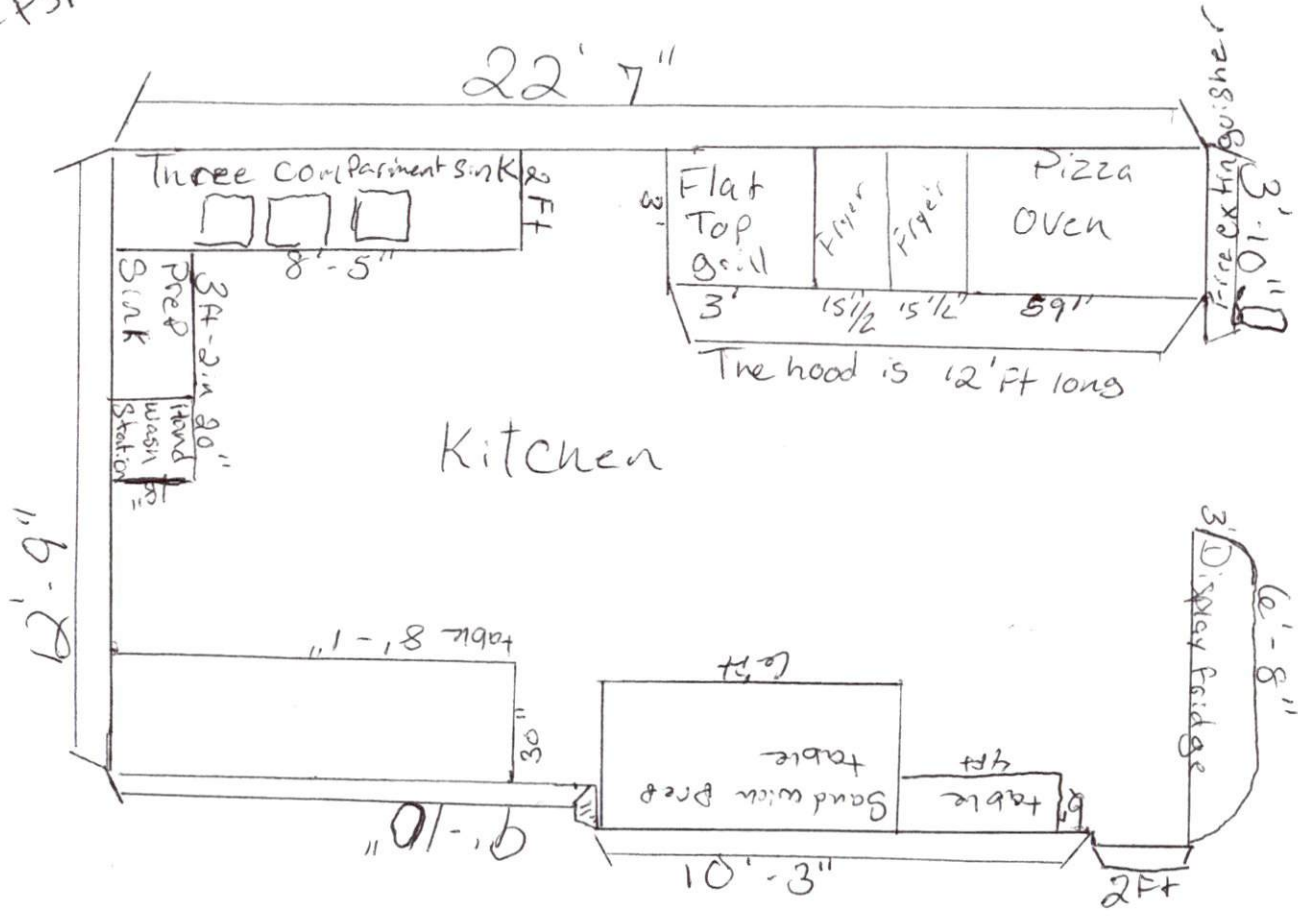 22' 7"
Three comPariment sink
2 Ft
8'-5"
Prep
Sink
3ft-2in
Hand
wash
Station
20"
3'
Flat
Top
grill
Fryer
Fryer
Pizza
Oven
3'
15 1/2
15 1/2"
59"
The hood is 12' Ft long
Fire extinguisher
3'-10"
Kitchen
table 8'-1"
30"
9'-10"
6 Ft
Sandwich prep
table
4Ft
table
10'-3"
2Ft
3'
Display fridge
6'-8"